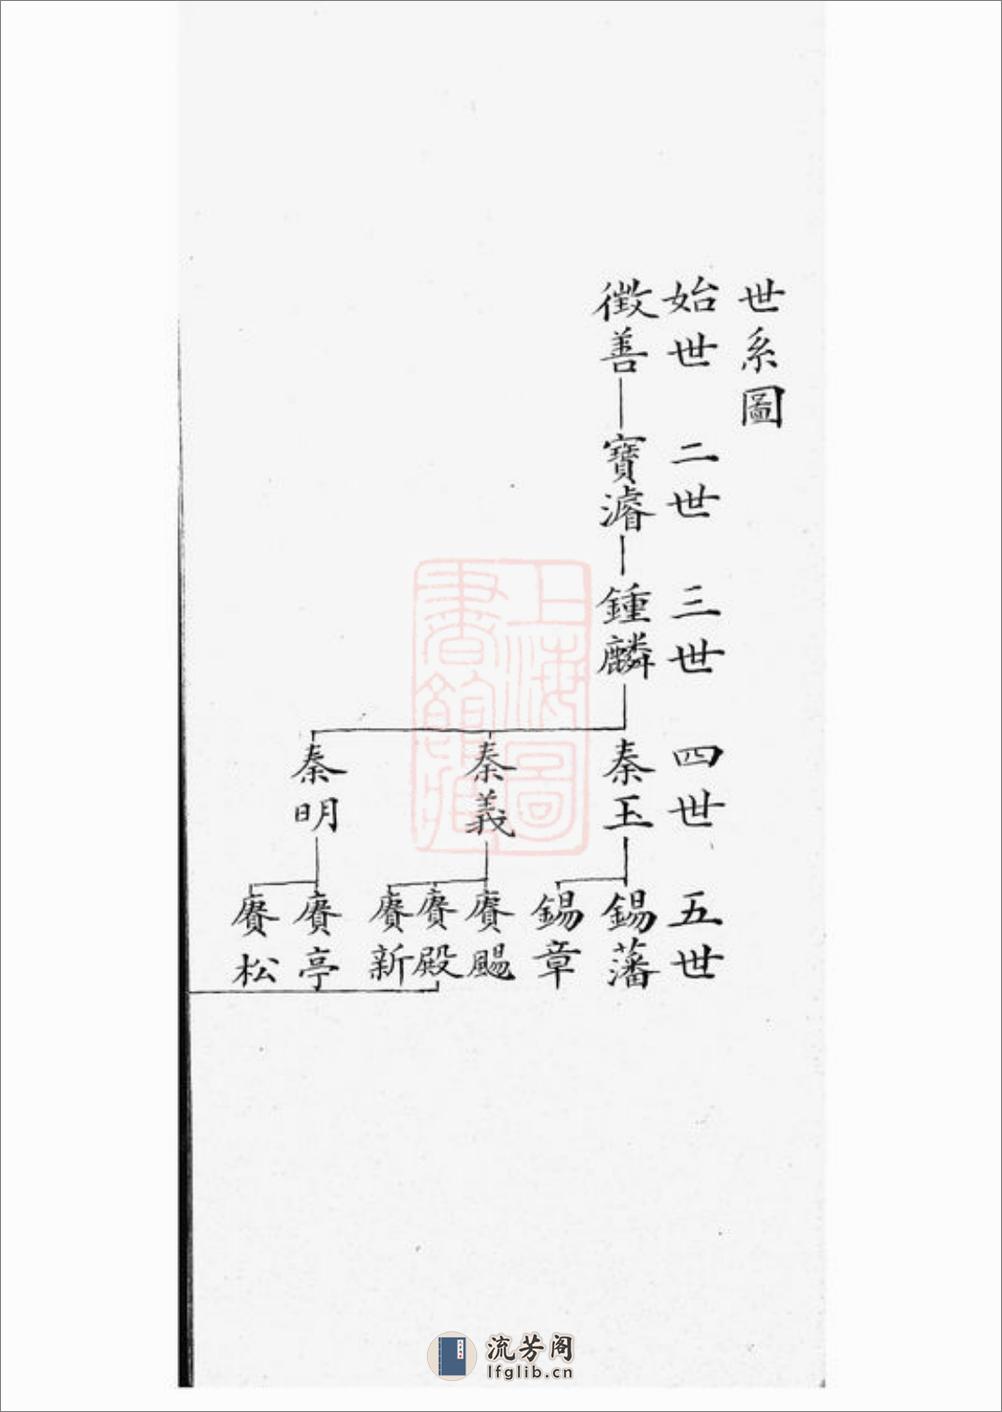 世系圖
始世 二世 三世 四世 五世
徵善 寶濬 鍾麟 秦玉 錫藩
錫章
秦義 賡颺
賡殿
賡新
秦明 賡亭
賡松
上海圖書館藏
流芳阁
lfglib.cn